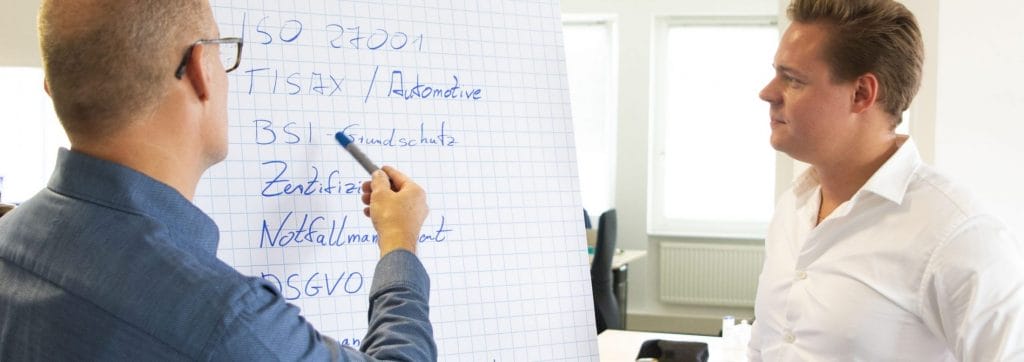 ISO 27001
TISAX / Automotive
BSI - Grundschutz
Zertifizi
Notfallman
DSGVO